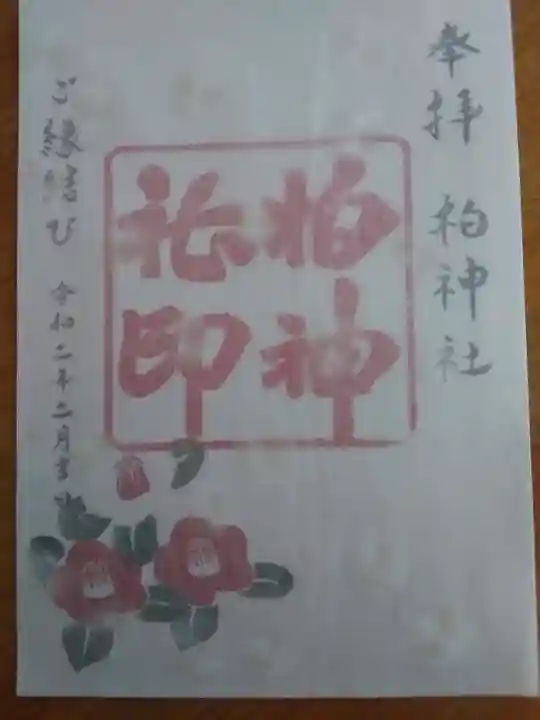 奉拝 柏神社
柏神
社印
ご縁結び 令和二年二月吉日